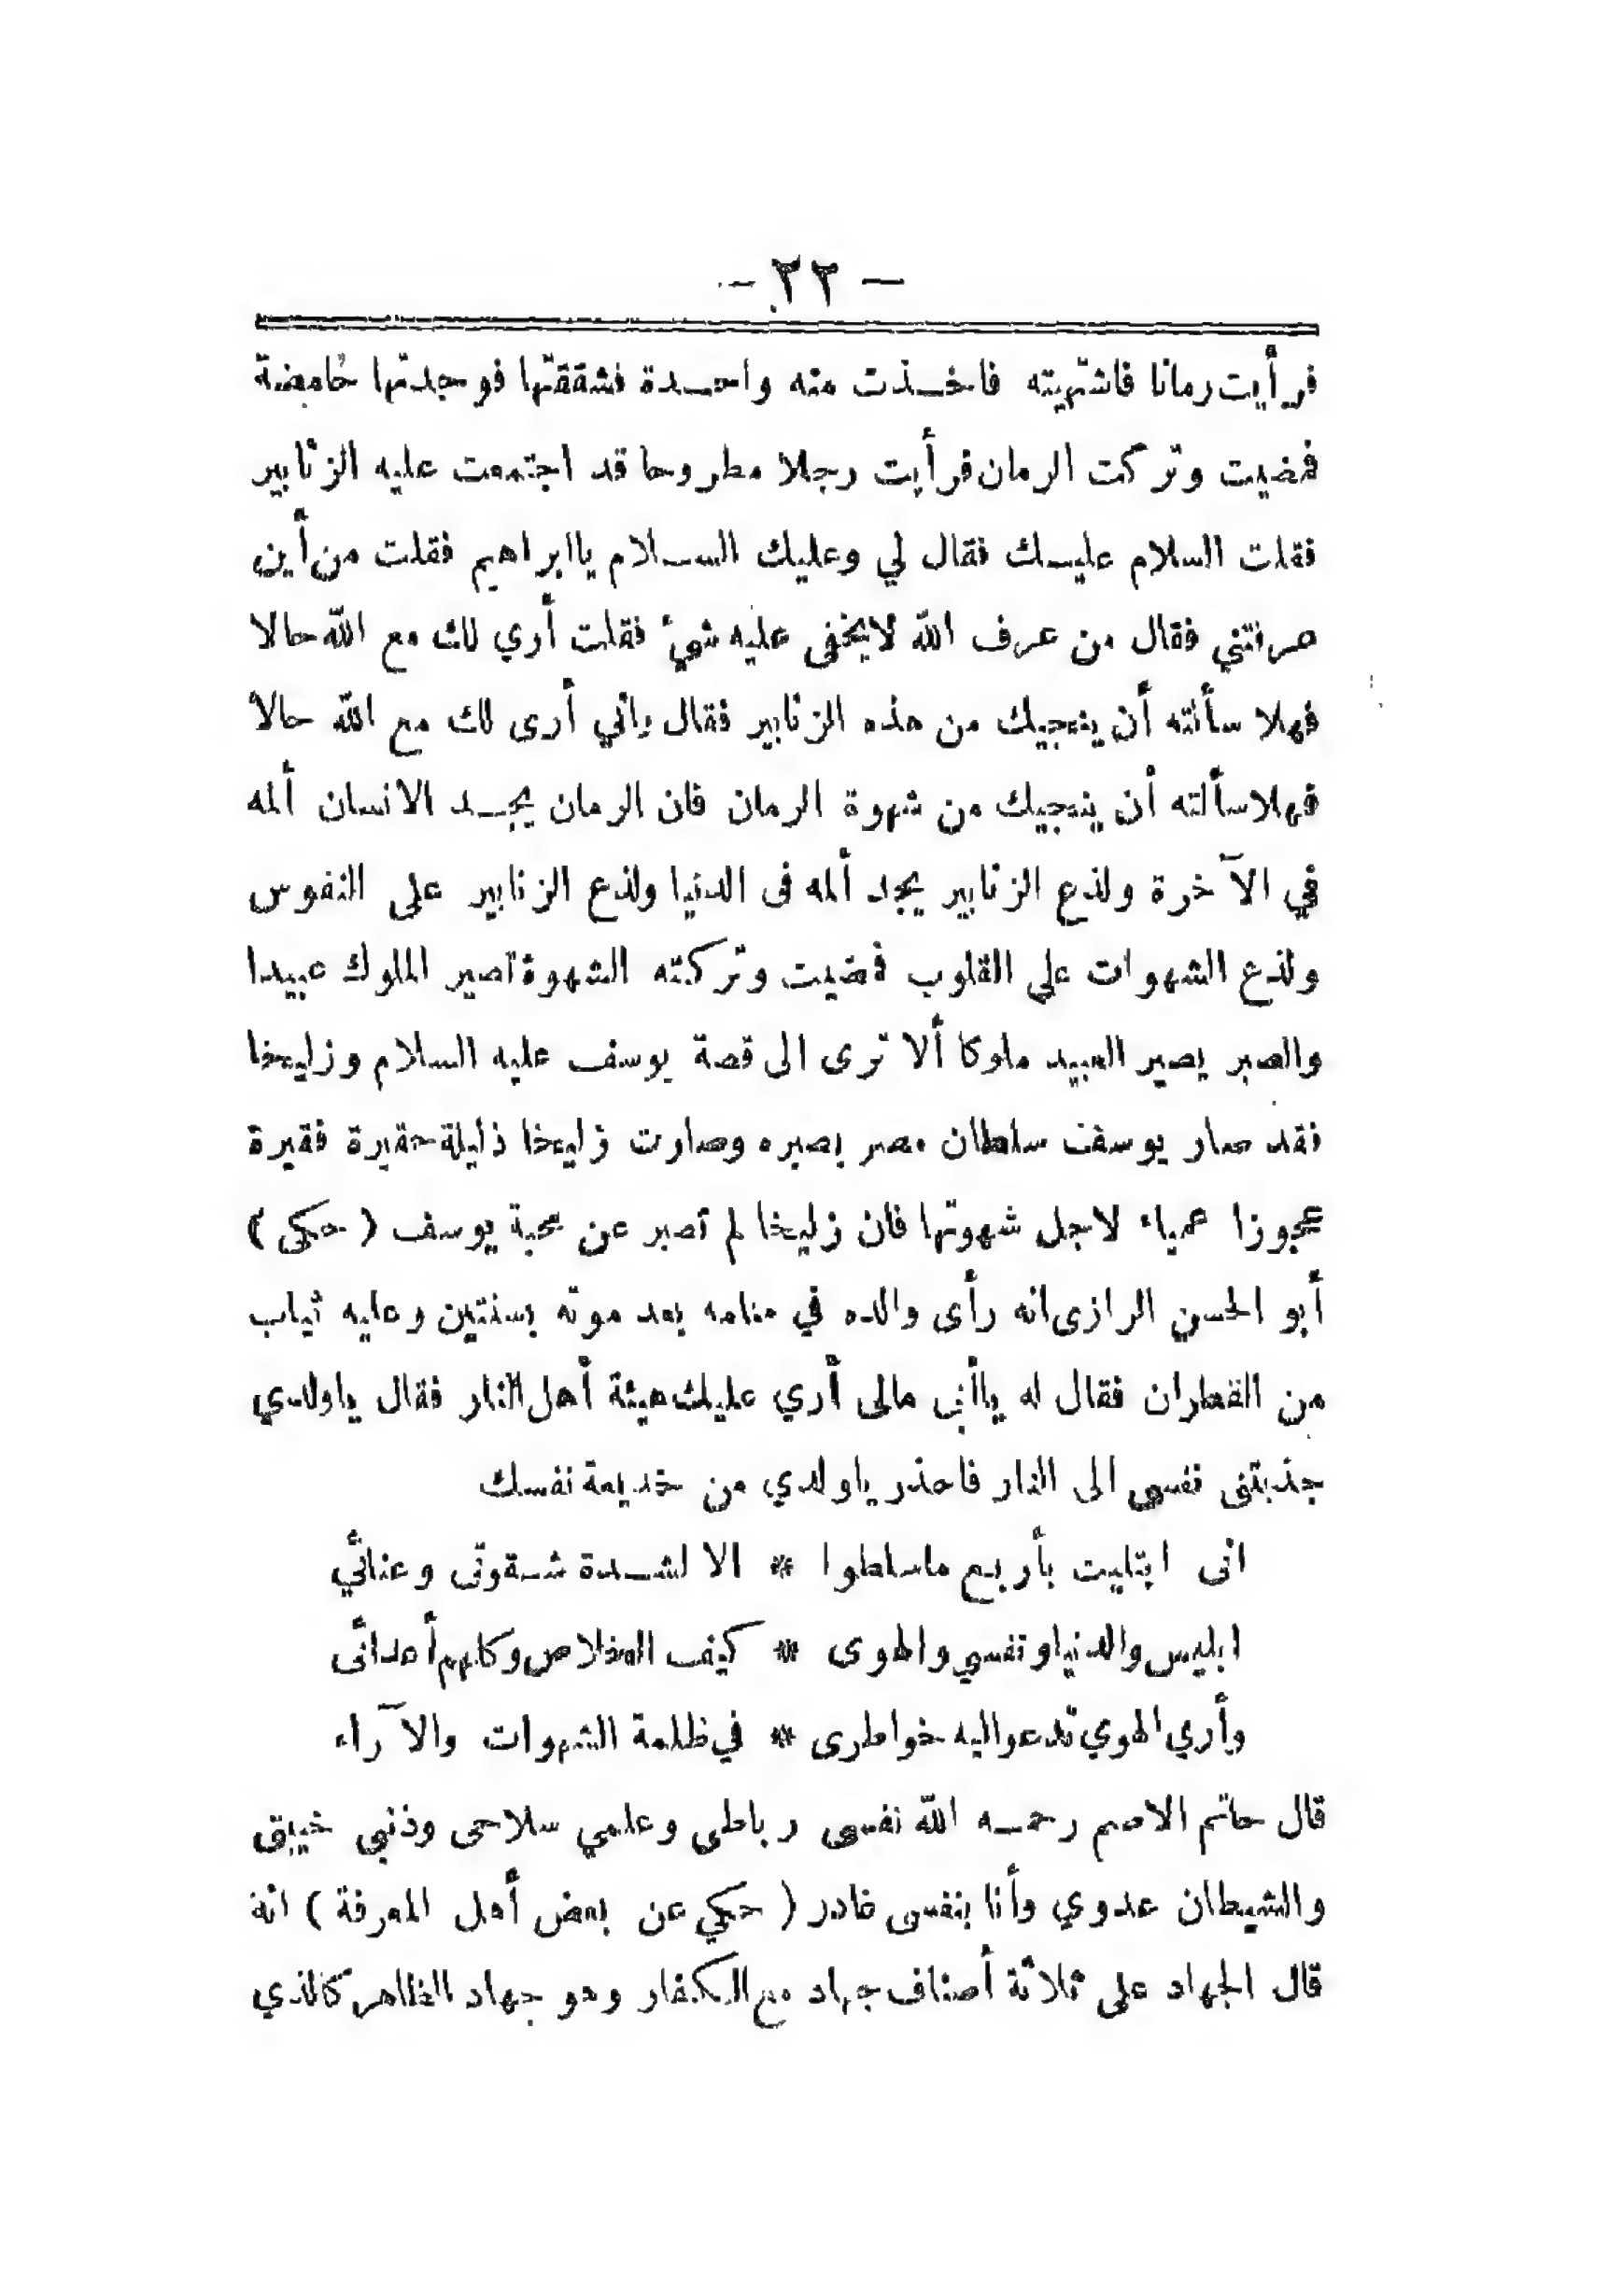 — ٢٢ —
فرأيت رمانا فاشتهيته فاخذت منه واحدة فشققتها فوجدتها حامضة
فمضيت وتركت الرمان فرأيت رجلا مطروحا قد اجتمعت عليه الزنابير
فقلت السلام عليك فقال لي وعليك السلام ياابراهيم فقلت من أين
عرفتني فقال من عرف الله لايخفى عليه شيء فقلت أري لك مع الله حالا
فهلا سألته أن ينجيك من هذه الزنابير فقال واني أرى لك مع الله حالا
فهلاسألته أن ينجيك من شهوة الرمان فان الرمان يجد الانسان ألمه
في الآخرة ولذع الزنابير يجد ألمه فى الدنيا ولذع الزنابير على النفوس
ولذع الشهوات علي القلوب فمضيت وتركته الشهوة تصير الملوك عبيدا
والصبر يصير العبيد ملوكا ألا ترى الى قصة يوسف عليه السلام وزليخا
فقد صار يوسف سلطان مصر بصبره وصارت زليخا ذليلة حقيرة فقيرة
عجوزا عمياء لاجل شهوتها فان زليخا لم تصبر عن محبة يوسف ( حكى )
أبو الحسن الرازى انه رأى والده في منامه بعد موته بسنتين وعليه ثياب
من القطران فقال له ياأبى مالى أري عليك هيئة أهل النار فقال ياولدي
جذبتنى نفسى الى النار فاحذر ياولدي من خديعة نفسك
انى ابتليت بأربع ماسلطوا * الا لشدة شقوتى وعنائي
ابليس والدنيا ونفسي والهوى * كيف الخلاص وكلهم أعدائى
وأري الهوي تدعو اليه خواطرى * في ظلمة الشهوات والآراء
قال حاتم الاصم رحمه الله نفسى رباطى وعلمي سلاحى وذنبي خيبتى
والشيطان عدوي وأنا بنفسى غادر ( حكي عن بعض أهل المعرفة ) انه
قال الجهاد على ثلاثة أصناف جهاد مع الكفار وهو جهاد الظاهر كالذي